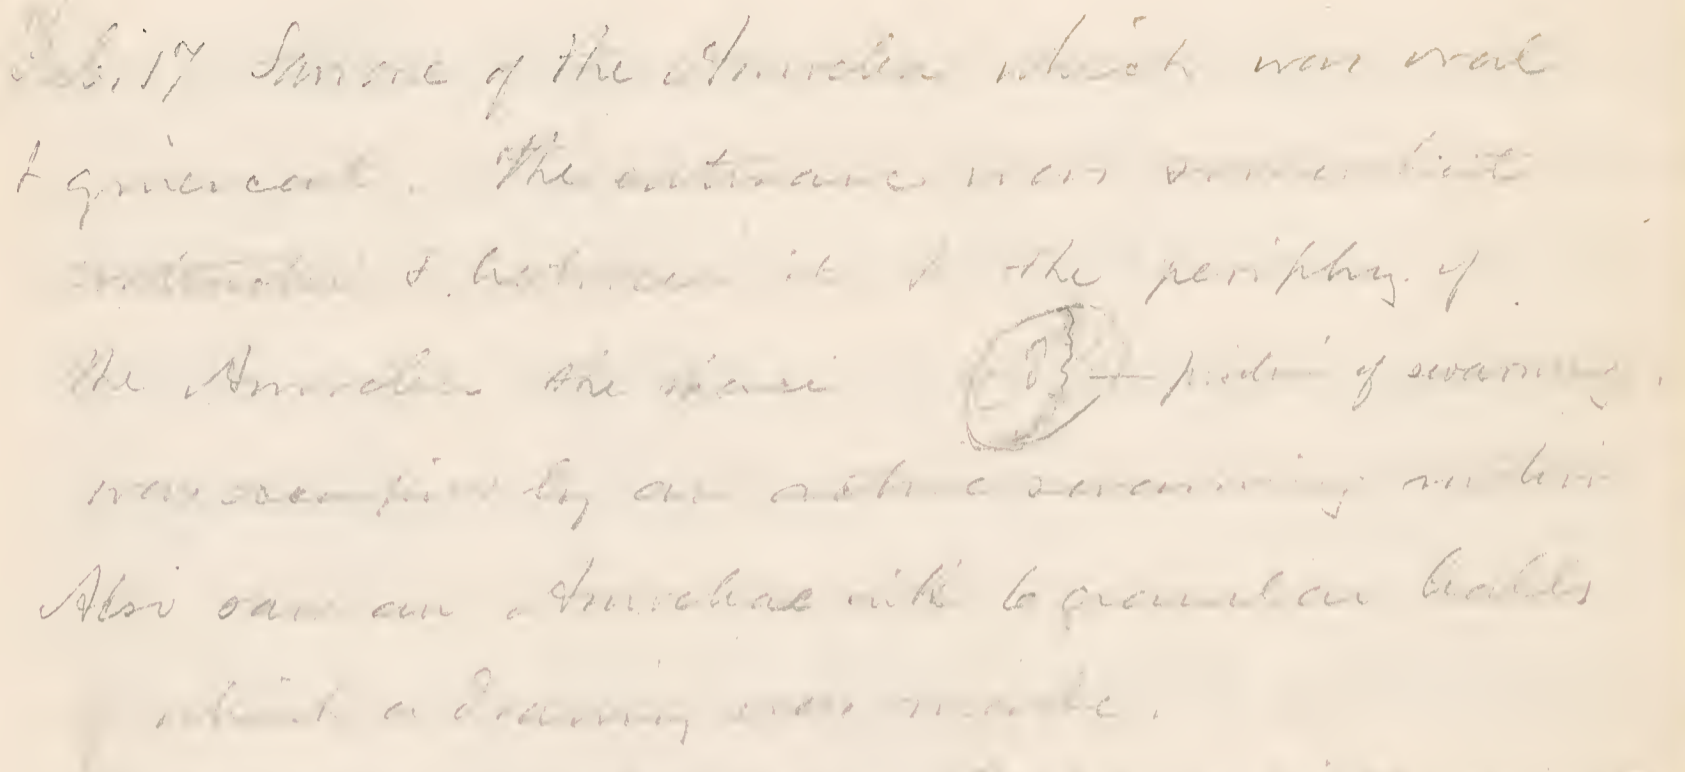 Feb. 17 Same of the Amoebae which was oval
& quiescent. The entrance was somewhat
& between it & the periphy. of
the Amoeba the space portion of swarming.
was occupied by an active swarming within
Also saw an Amoebae with 6 granular balls
which a drawing was made.